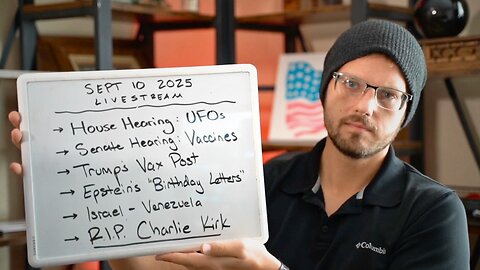 SEPT 10 2025
LIVESTREAM
→ House Hearing: UFOs
→ Senate Hearing: Vaccines
→ Trump's Vax Post
→ Epstein's "Birthday Letters"
→ Israel - Venezuela
→ R.I.P. Charlie Kirk
Columbia